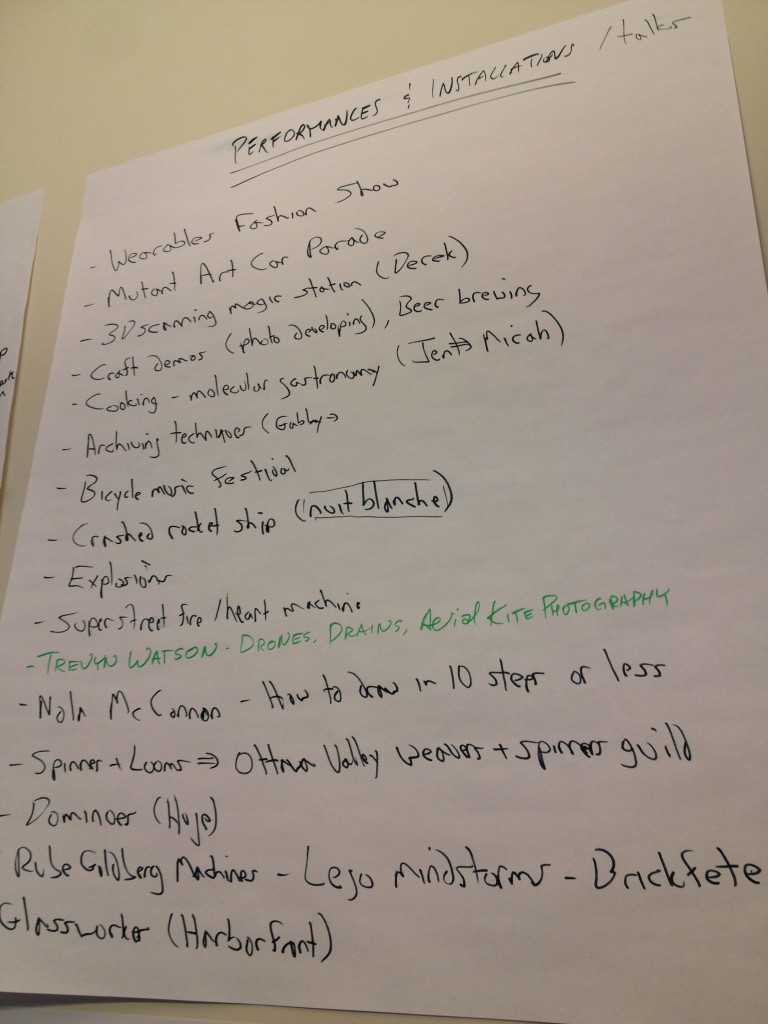 PERFORMANCES & INSTALLATIONS / talks
- Wearables Fashion Show
- Mutant Art Car Parade
- 3D scanning magic station (Derek)
- Craft demos (photo developing), Beer brewing
- Cooking - molecular gastronomy (Jent → Micah)
- Archiving techniques (Gabby →
- Bicycle music festival
- Crashed rocket ship (nuit blanche)
- Explosions
- Super street fire / heart machine
- TREVYN WATSON - DRONES, DRAINS, AeriAl KITE PHOTOGRAPHY
- Nala McCannon - How to draw in 10 steps or less
- Spinner + Looms ⇒ Ottawa Valley weavers + spinners guild
- Dominoes (Huge)
Rube Goldberg Machines - Lego mindstorms - Brickfete
Glassworks (Harborfront)